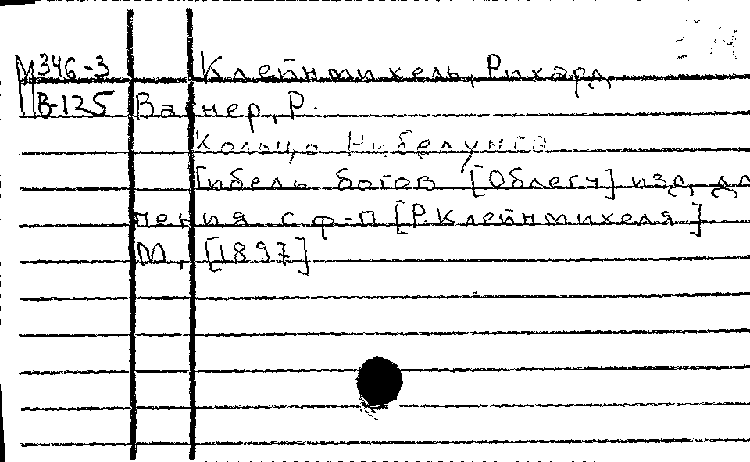 М 346-3 Клейнмихель, Рихард
В-125 Вагнер, Р.
Кольцо Нибелунга
Гибель богов [Облегч] изд. для
пения с ф-п [Р. Клейнмихеля]
М., [1897]